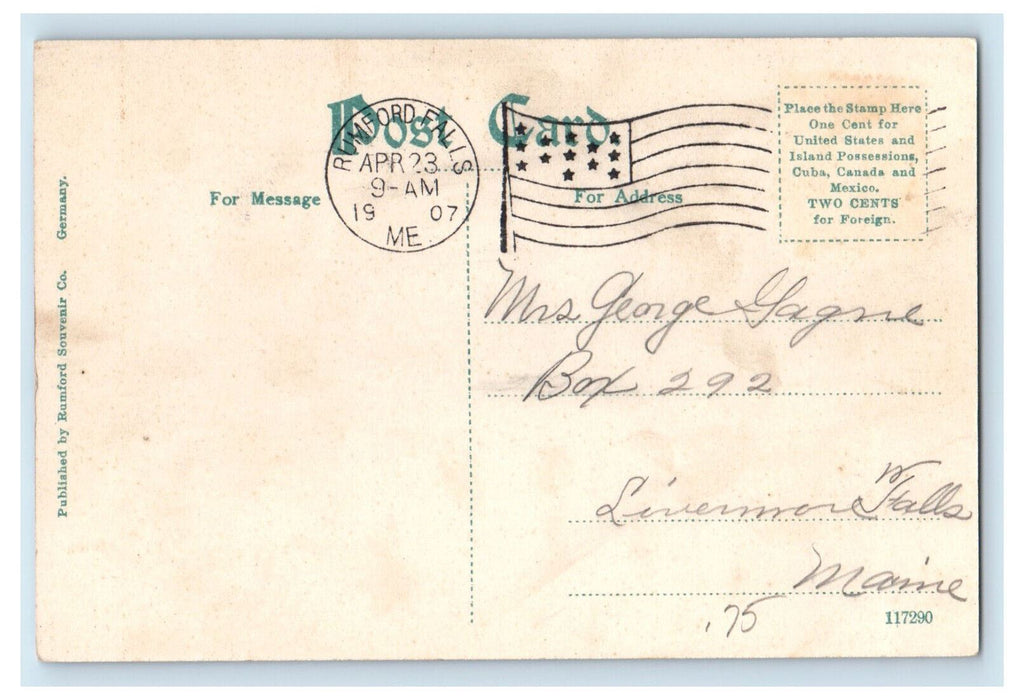 Post Card
RUMFORD FALLS
APR 23
9-AM
19 07
ME.
For Message
For Address
Place the Stamp Here
One Cent for
United States and
Island Possessions,
Cuba, Canada and
Mexico.
TWO CENTS
for Foreign.
Published by Rumford Souvenir Co. Germany.
Mrs George Gagne
Box 292
Livermore Falls
Maine
.75
117290